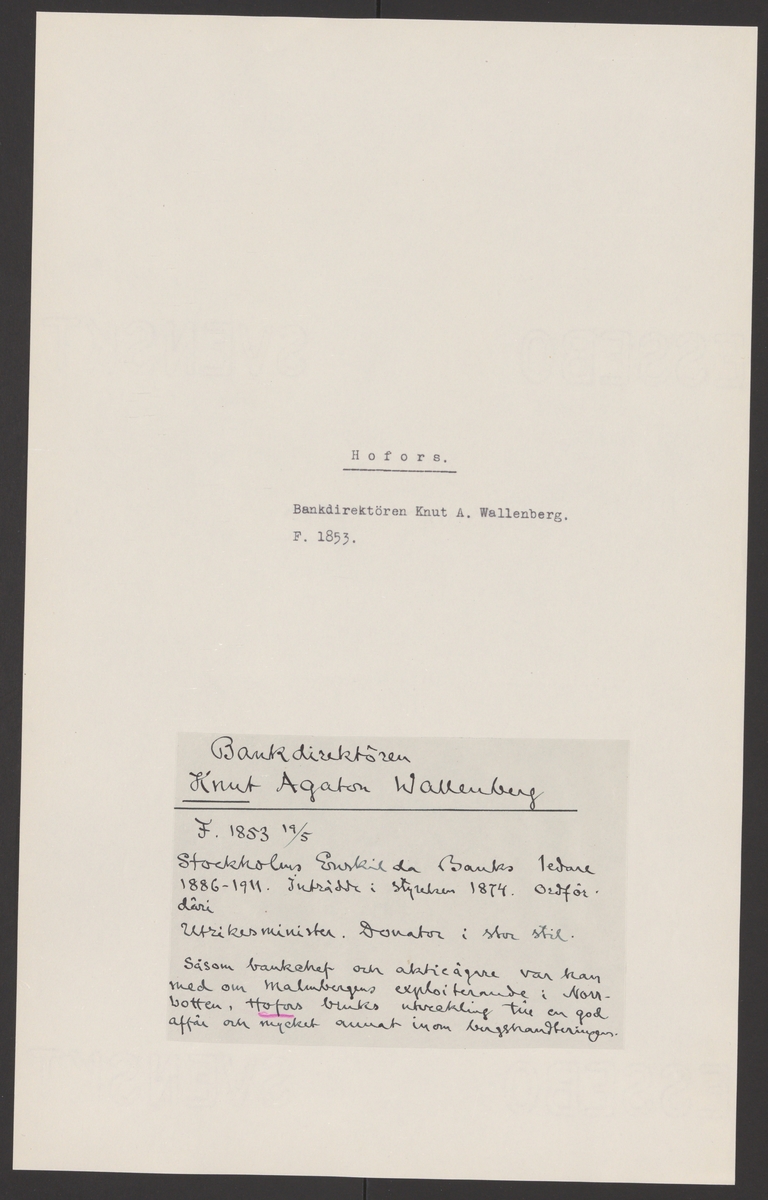 H o f o r s.
Bankdirektören Knut A. Wallenberg.
F. 1853.
Bankdirektören
Knut Agaton Wallenberg
F. 1853 19/5
Stockholms Enskilda Banks ledare
1886-1911. Inträdde i styrelsen 1874. Ordför-
därі
Utrikesminister. Donator i stor stil.
Såsom bankchef och aktieägare var han
med om Malmbergens exploiterande i Norr-
botten, Hofors bruks utveckling till en god
affär och mycket annat inom bergshandteringen.